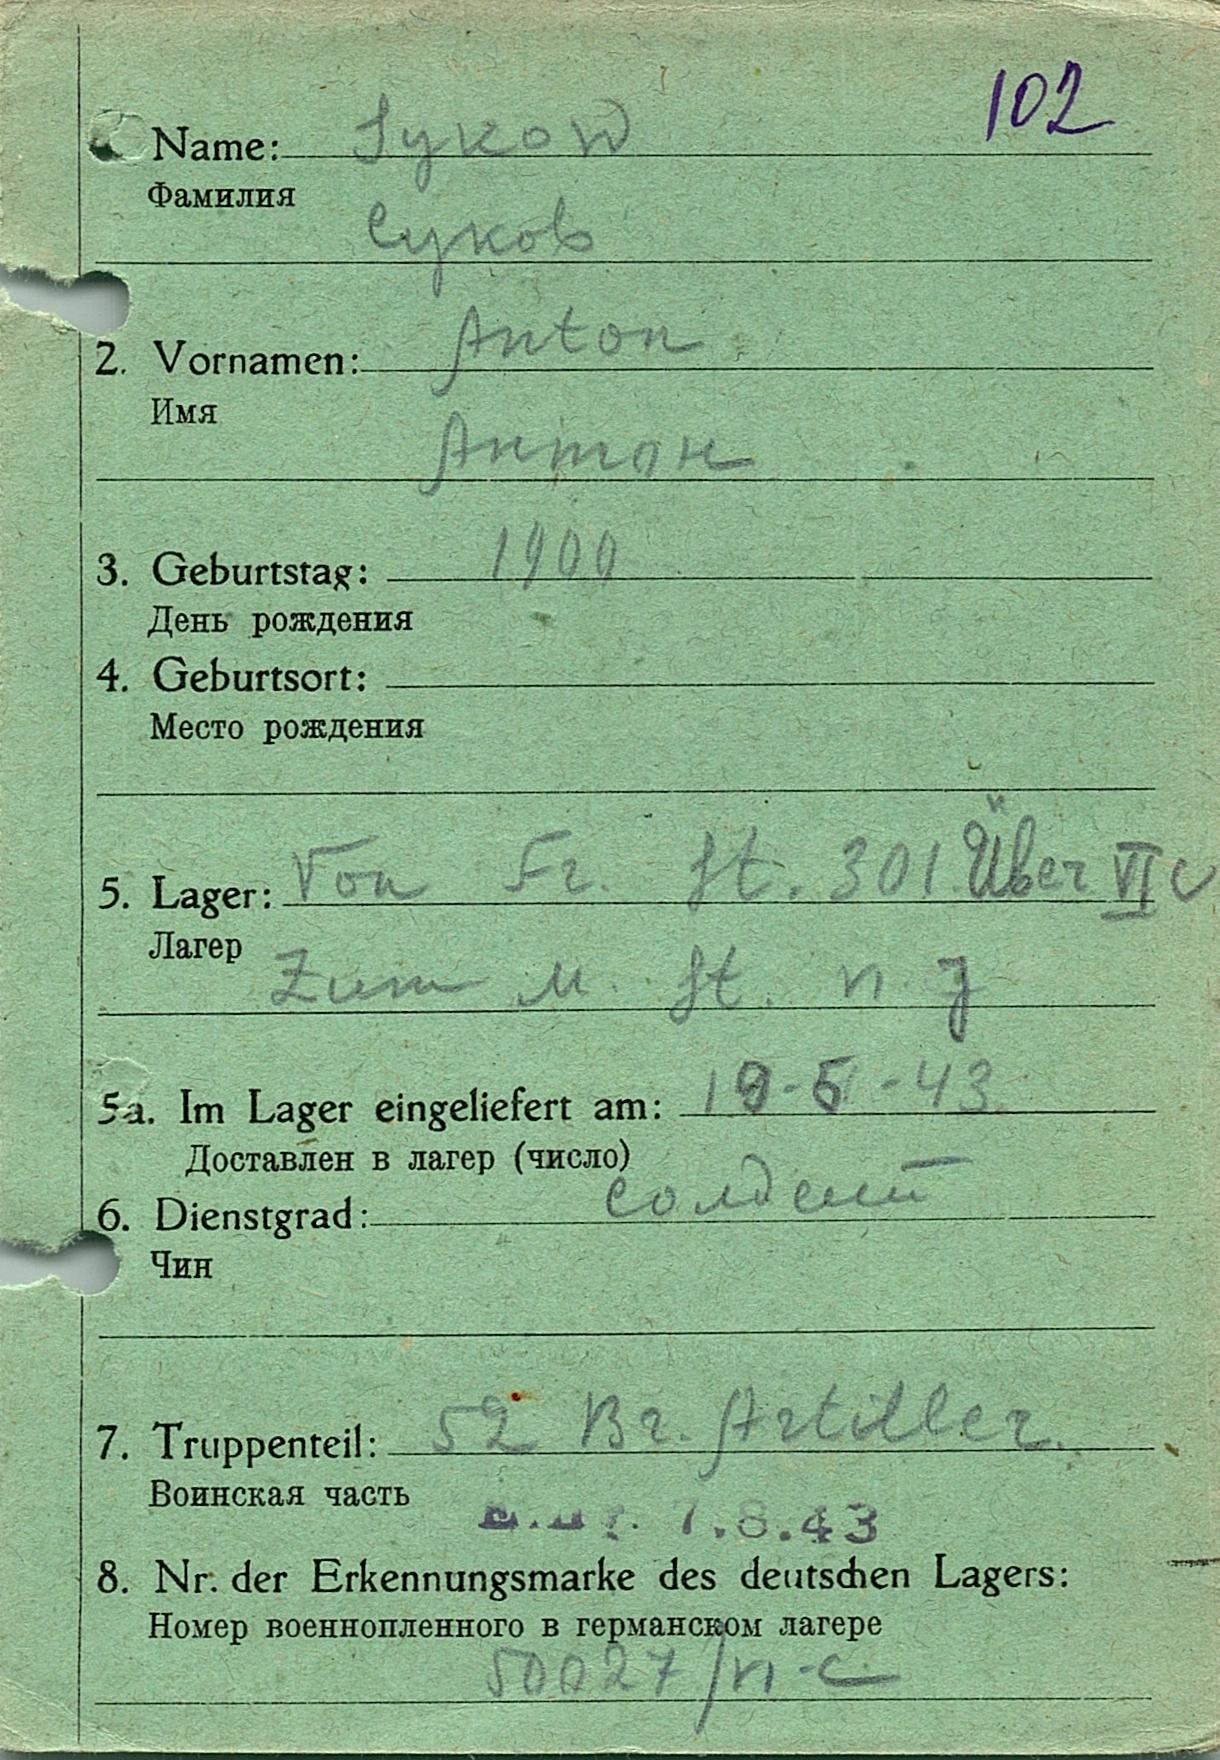 102
Name: Sykow
Фамилия
Суков
2. Vornamen: Anton
Имя
Антон
3. Geburtstag: 1900
День рождения
4. Geburtsort:
Место рождения
5. Lager: Von Fr. St. 301 Über VI C
Лагер
Zum M. St. VI J
5a. Im Lager eingeliefert am: 19-5-43
Доставлен в лагер (число)
6. Dienstgrad: солдат
Чин
7. Truppenteil: 52 Br. Artiller.
Воинская часть
7.8.43
8. Nr. der Erkennungsmarke des deutschen Lagers:
Номер военнопленного в германском лагере
50027/VI-C